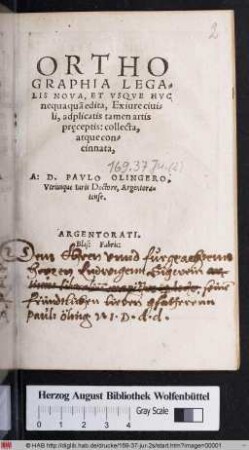 2
ORTHO
GRAPHIA LEGA-
LIS NOVA, ET VSQVE HVC
nequaquã edita, Ex iure ciui-
li, adplicatis tamen artis
pręceptis: collecta,
atque con-
cinnata,
169.37 Jur. (2)
A: D. PAVLO OLINGERO,
Vtriusque Iuris Doctore, Argentora-
tense.
ARGENTORATI.
Blas: Fabric:
Dem Ehren
Herren Ludwigen
freundtlichen lieben gfatteren
Pauls Öling
Herzog August Bibliothek Wolfenbüttel
0 1 2 3 4
Gray Scale
© HAB http://diglib.hab.de/drucke/169-37-jur-2s/start.htm?image=00001